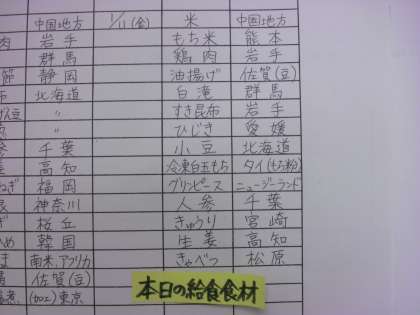 中国地方 1/11(金) 米 中国地方
肉 岩手 もち米 熊本
群馬 鶏肉 岩手
節 静岡 油揚げ 佐賀(豆)
布 北海道 白滝 群馬
げ豆 〃 すき昆布 岩手
〃 ひじき 愛媛
千葉 小豆 北海道
高知 冷凍白玉もち タイ(もち粉)
ねぎ 福岡 グリンピース ニュージーランド
神奈川 人参 千葉
ぎ 桜丘 きゅうり 宮崎
め 韓国 生姜 高知
ま 南米、アフリカ きゃべつ 松原
佐賀(豆)
煮 東京
本日の給食食材